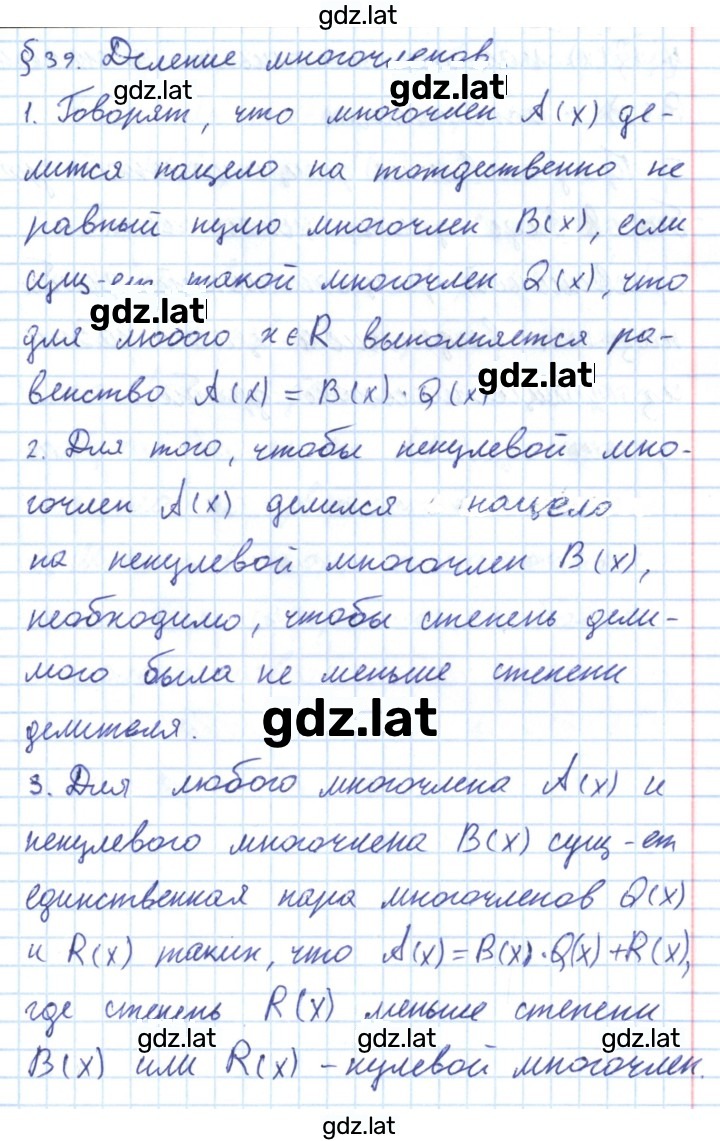 gdz.lat
§ 39. Деление многочленов
gdz.lat gdz.lat
1. Говорят, что многочлен A(x) де-
лится нацело на тождественно не
равный нулю многочлен B(x), если
сущ-ет такой многочлен Q(x), что
gdz.lat
для любого x∈R выполняется ра-
gdz.lat
венство A(x) = B(x) · Q(x)
2. Для того, чтобы ненулевой мно-
гочлен A(x) делился нацело
на ненулевой многочлен B(x),
необходимо, чтобы степень дели-
мого была не меньше степени
делителя.
gdz.lat
3. Для любого многочлена A(x) и
ненулевого многочлена B(x) сущ-ет
единственная пара многочленов Q(x)
и R(x) таких, что A(x)=B(x)·Q(x)+R(x),
где степень R(x) меньше степени
gdz.lat gdz.lat gdz.lat
B(x) или R(x) – нулевой многочлен.
gdz.lat